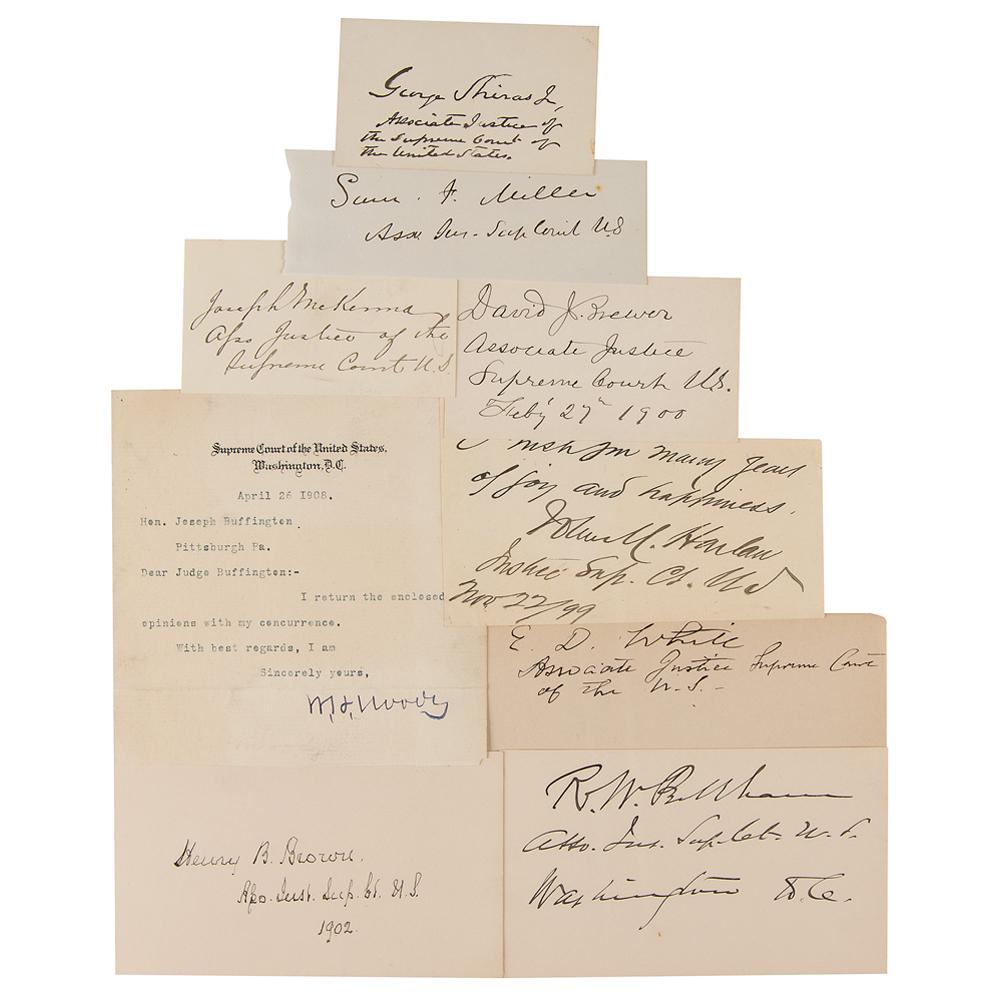 George Shiras Jr,
Associate Justice of
the Supreme Court of
the United States.
Sam. F. Miller
Asso Jus. Sup Court U.S
Joseph McKenna
Asso Justice of the
Supreme Court U.S.
David J. Brewer
Associate Justice
Supreme Court U.S.
Feb'y 27th 1900
Supreme Court of the United States,
Washington, D.C.
April 26 1908.
Hon. Joseph Buffington,
Pittsburgh Pa.
Dear Judge Buffington:-
I return the enclosed
opinions with my concurrence.
With best regards, I am
Sincerely yours,
W.H. Moody
I wish you many years
of joy and happiness.
John M. Harlan
Justice Sup. Ct. US
Nov 22/99
E. D. White
Associate Justice Supreme Court
of the U.S.-
Henry B. Brown.
Asso. Just. Sup. Ct. U.S.
1902.
R. W. Peckham
Asso. Jus. Sup. Ct. U.S.
Washington D.C.